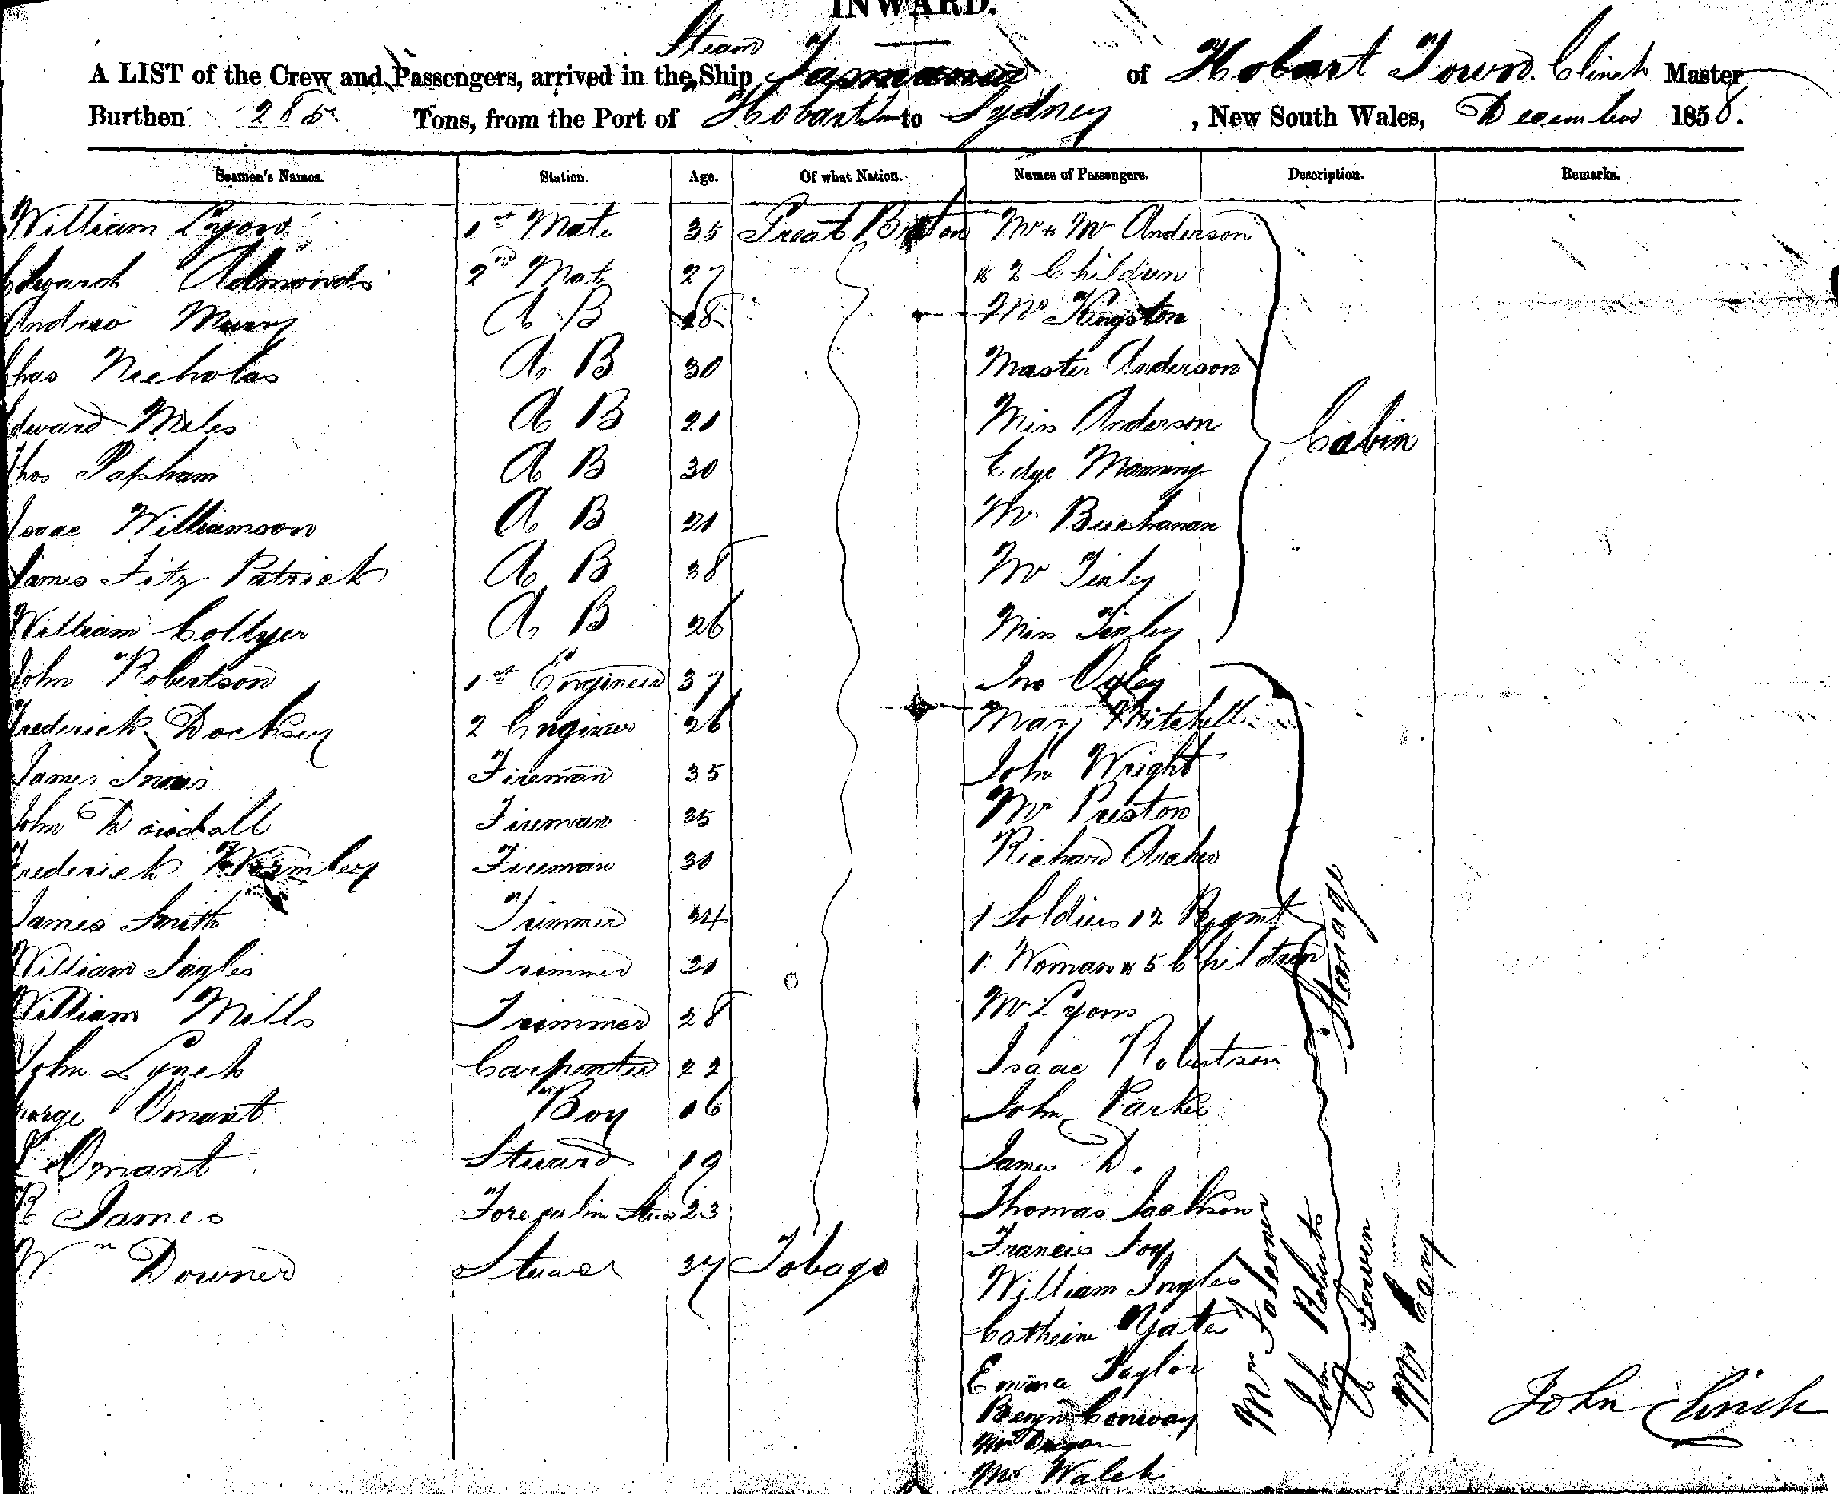 INWARD.
Steam
A LIST of the Crew and Passengers, arrived in the Ship Tasmania of Hobart Town. Clinch Master
Burthen 285 Tons, from the Port of Hobart to Sydney, New South Wales, December 1858.
Seamen's Names. Station. Age. Of what Nation. Names of Passengers. Description. Remarks.
William Lyons 1st Mate 35 Great Britain Mr & Mr Anderson
Edward 2nd Mate 27 & 2 Children
Andrew A B Mr Kingston
Chas Nicholas A B 30 Master Anderson
Edward Miles A B 21 Miss Anderson Cabin
Thos Papham A B 30 Edge Manning
Isaac Williamson A B 21 Mr Buchanan
James Fitz Patrick A B 38 Mr
William Collyer A B 26 Miss
John Robertson 1st Engineer 37 Jno
Frederick Docksey 2 Engineer 26 Mary Mitchell
James Fireman 35 John Wright
John Fireman 35 Mr Preston
Frederick Fireman 30 Richard Archer
James Smith Trimmer 24 1 Soldier 12 Regmt
Steerage
William Inglis Trimmer 1 Woman & 5 Children
William Mills Trimmer 28 Mr Lyons
John Lynch Carpenter 22 Isaac Robertson
George Omant Boy 16 John Parker
Omant Steward 19 James D.
R James Forecabin 23 Thomas Jackson
Wm Downer Steward 37 Tobago Francis Foy
William Ingles
Cathein Yates
Emma Taylor
Benjn Conway
Mr Walsh
Mr Falconer
John Roberts
Mr
John Clinch